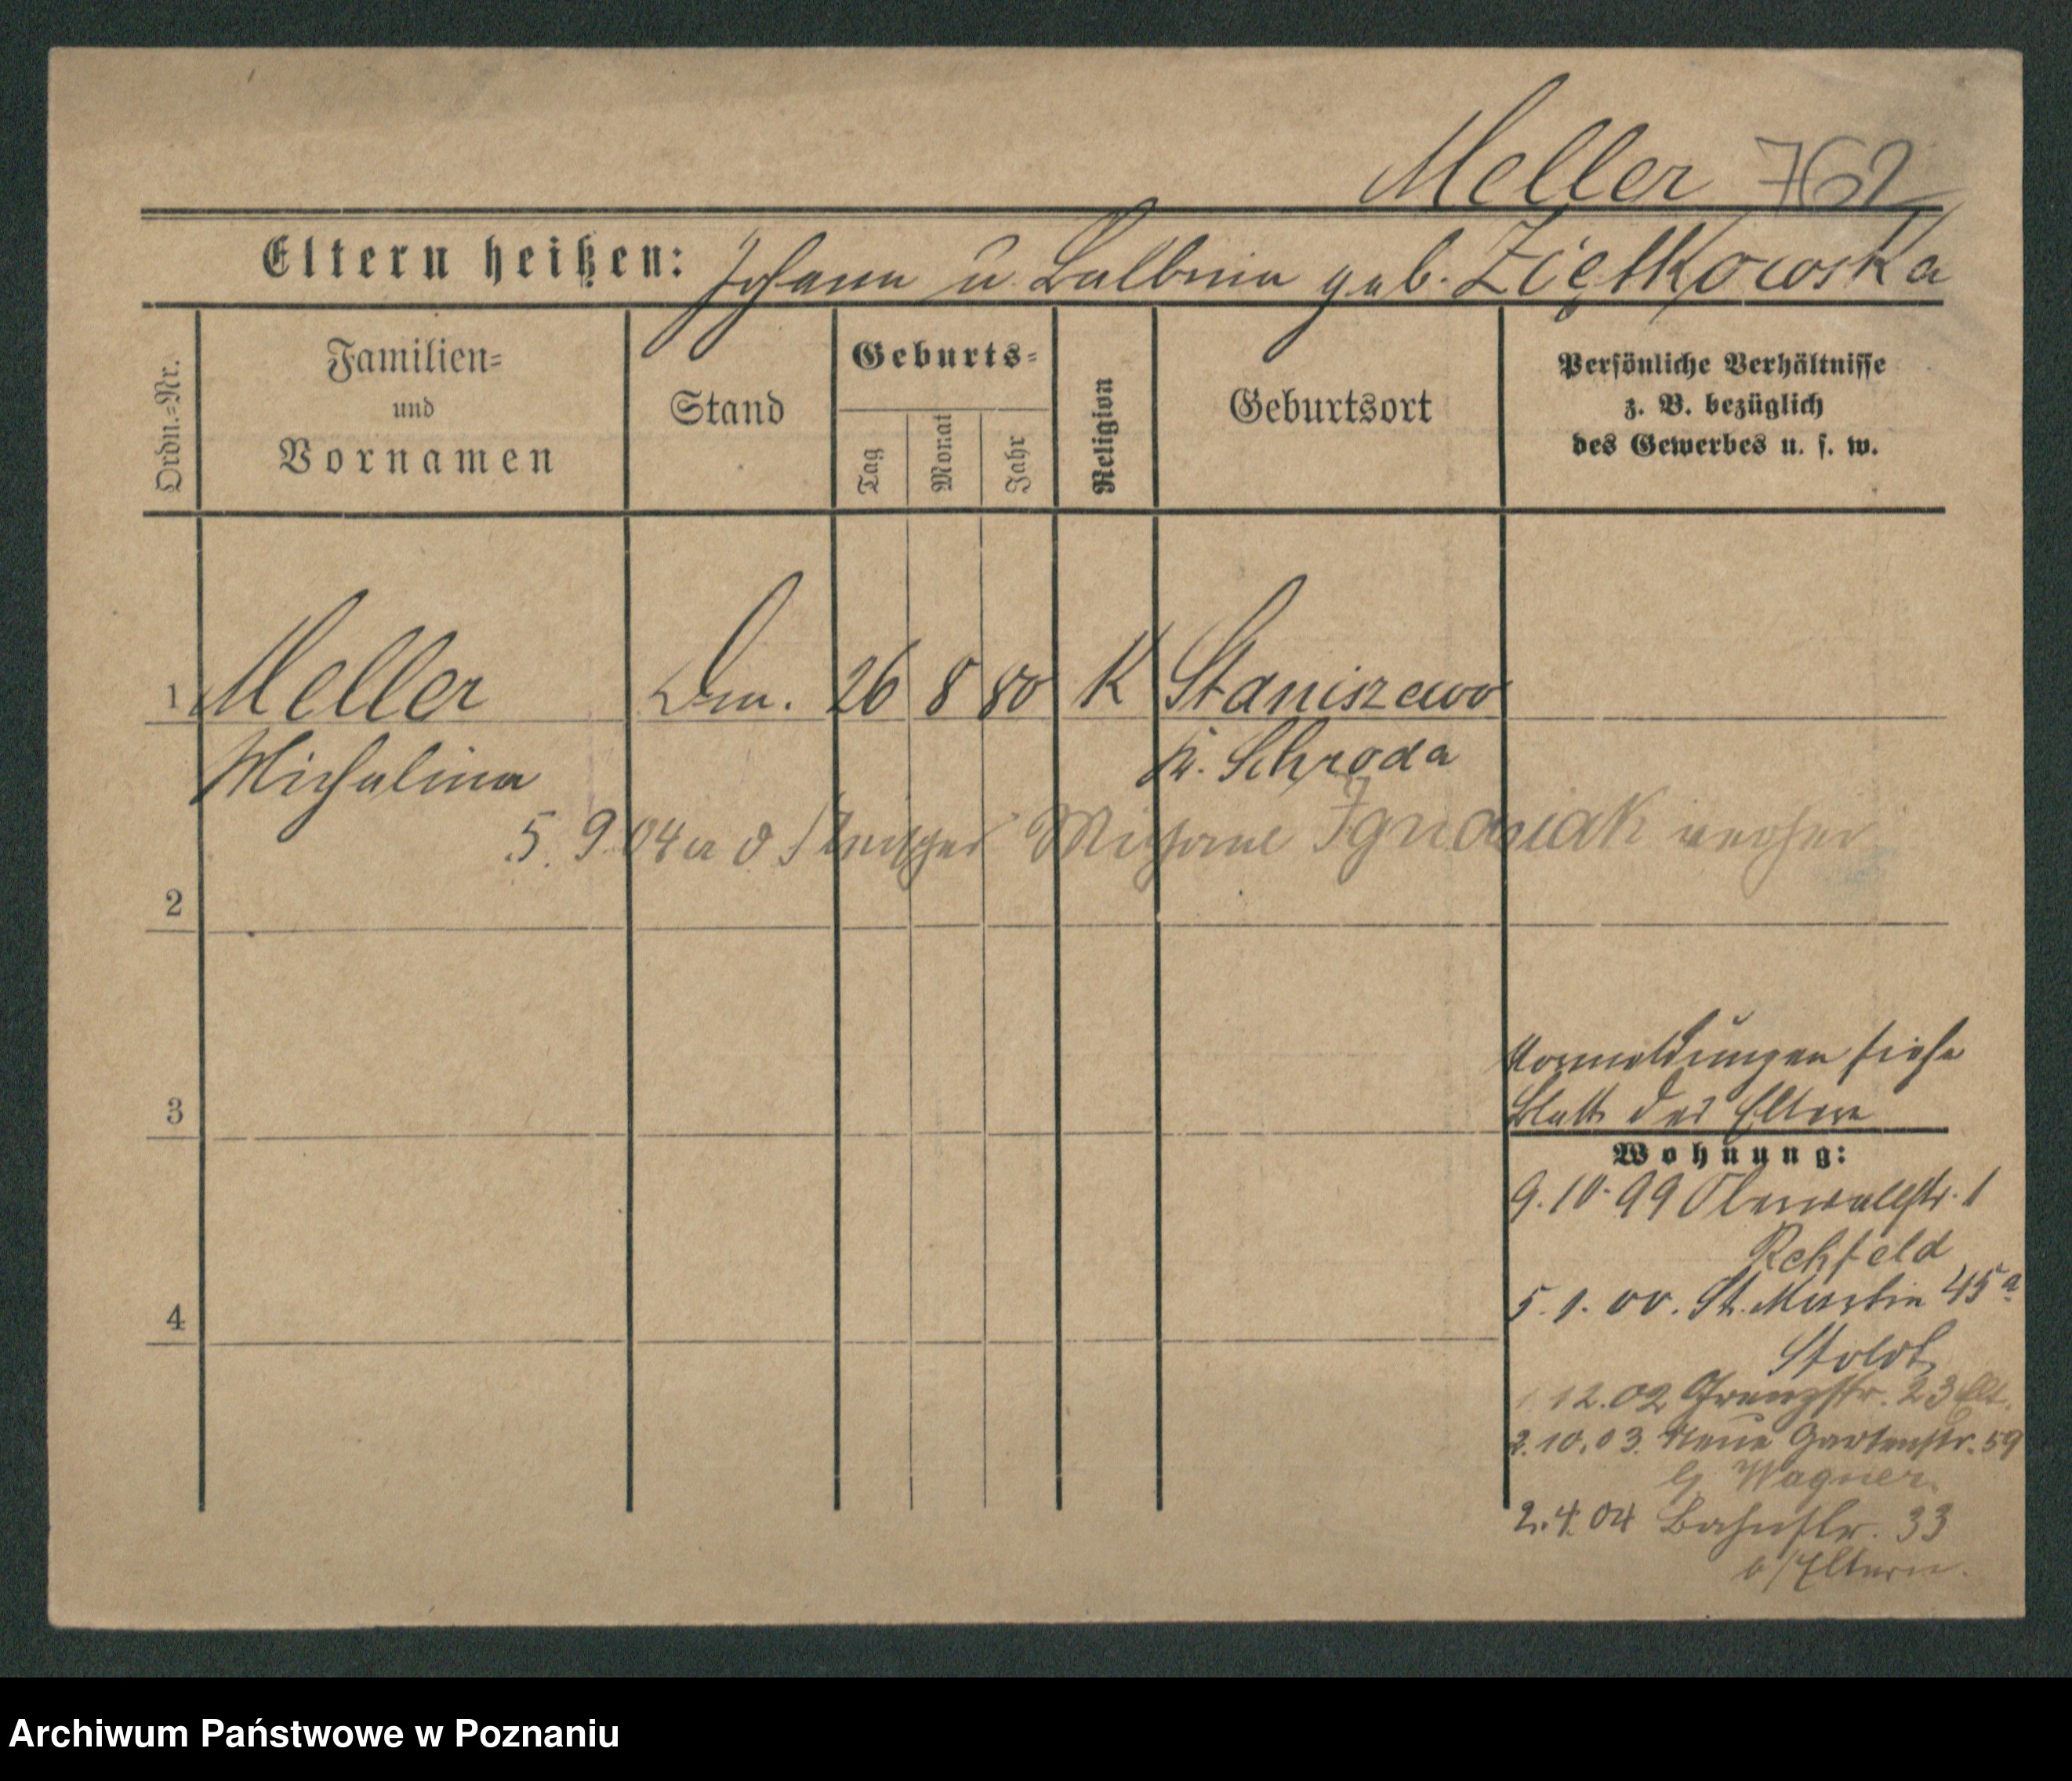 Meller 762
Eltern heißen: Johann u. Balbina geb. Ziętkowska
Ordn.=Nr.
Familien=
und
Vornamen
Stand
Geburts=
Tag
Monat
Jahr
Religion
Geburtsort
Persönliche Verhältnisse
z. B. bezüglich
des Gewerbes u. s. w.
1 Meller 26 8 80 K Staniszewo
Michalina Kr. Schroda
5. 9. 04 a d Ignasiak verher
2
3
4
Vormeldungen siehe
Blatt der Eltern
Wohnung:
9. 10. 99 Oberwallstr. 1
Rehfeld
5. 1. 00. St. Martin 45a
Stoldt
1 12. 02 Grenzstr. 23
2. 10. 03. Neue Gartenstr. 59
b/ Wagner
2. 4. 04 Bahnstr. 33
b/Eltern.
Archiwum Państwowe w Poznaniu